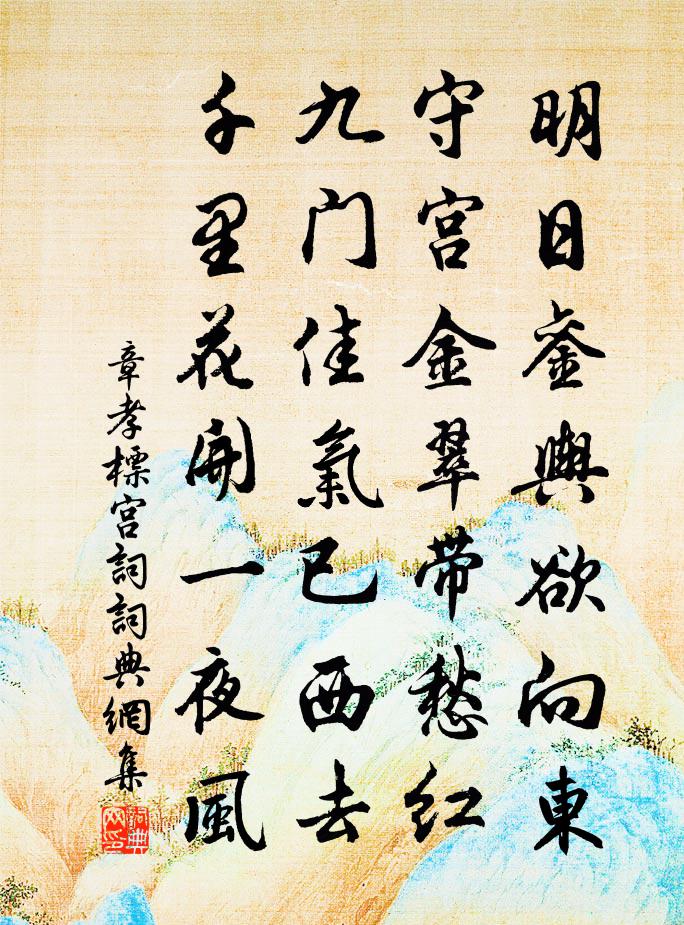 明日銮舆欲向東
守宫金翠带愁红
九门佳氣已西去
千里花開一夜風
章孝標宫詞詞典網集
詞典
网印